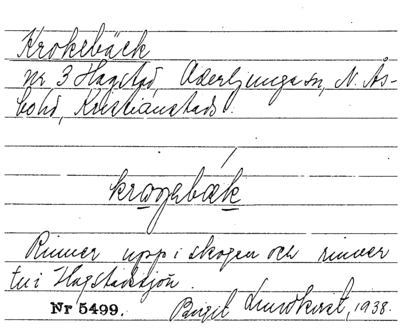 Krokebäck
nr 3 Hagstad, Oderljunga sn, N. Ås-
bo hd, Kristianstads.
Rinner upp i skogen och rinner
in i Hagstadsjön.
Nr 5499. Birgit Lundkvist, 1938.